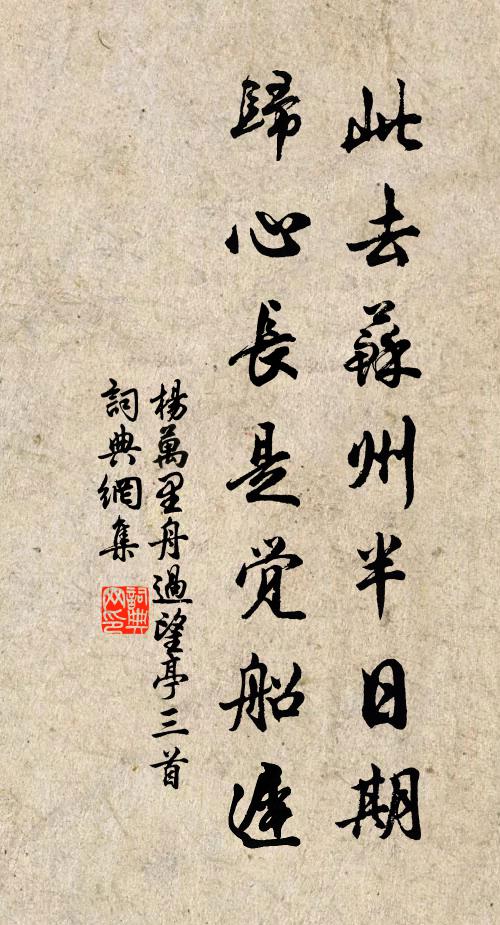 此去蘇州半日期
歸心長是觉船遲
楊萬里舟過望亭三首
詞典網集
詞典网印